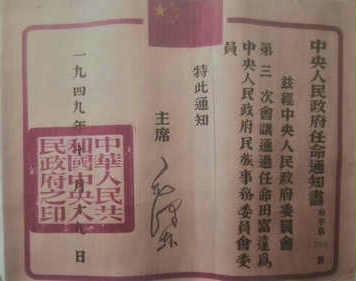 中央人民政府任命通知書
茲經中央人民政府委員會
第三次會議通過任命田富達爲
中央人民政府民族事務委員會委
員
特此通知
主席
毛澤东
一九四九年十月十九日
中華人民共
和國中央人
民政府之印